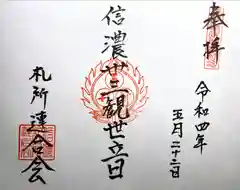 奉拝
令和四年
五月二十二日
信濃卅三観世音
札所連合会